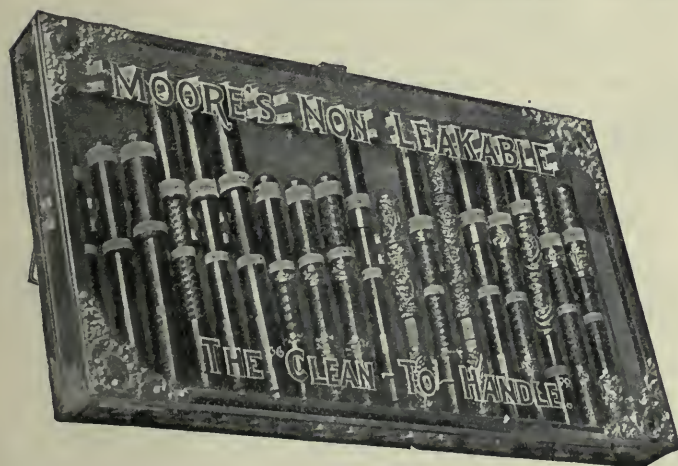 MOORE'S NON LEAKABLE
THE "CLEAN-TO-HANDLE".